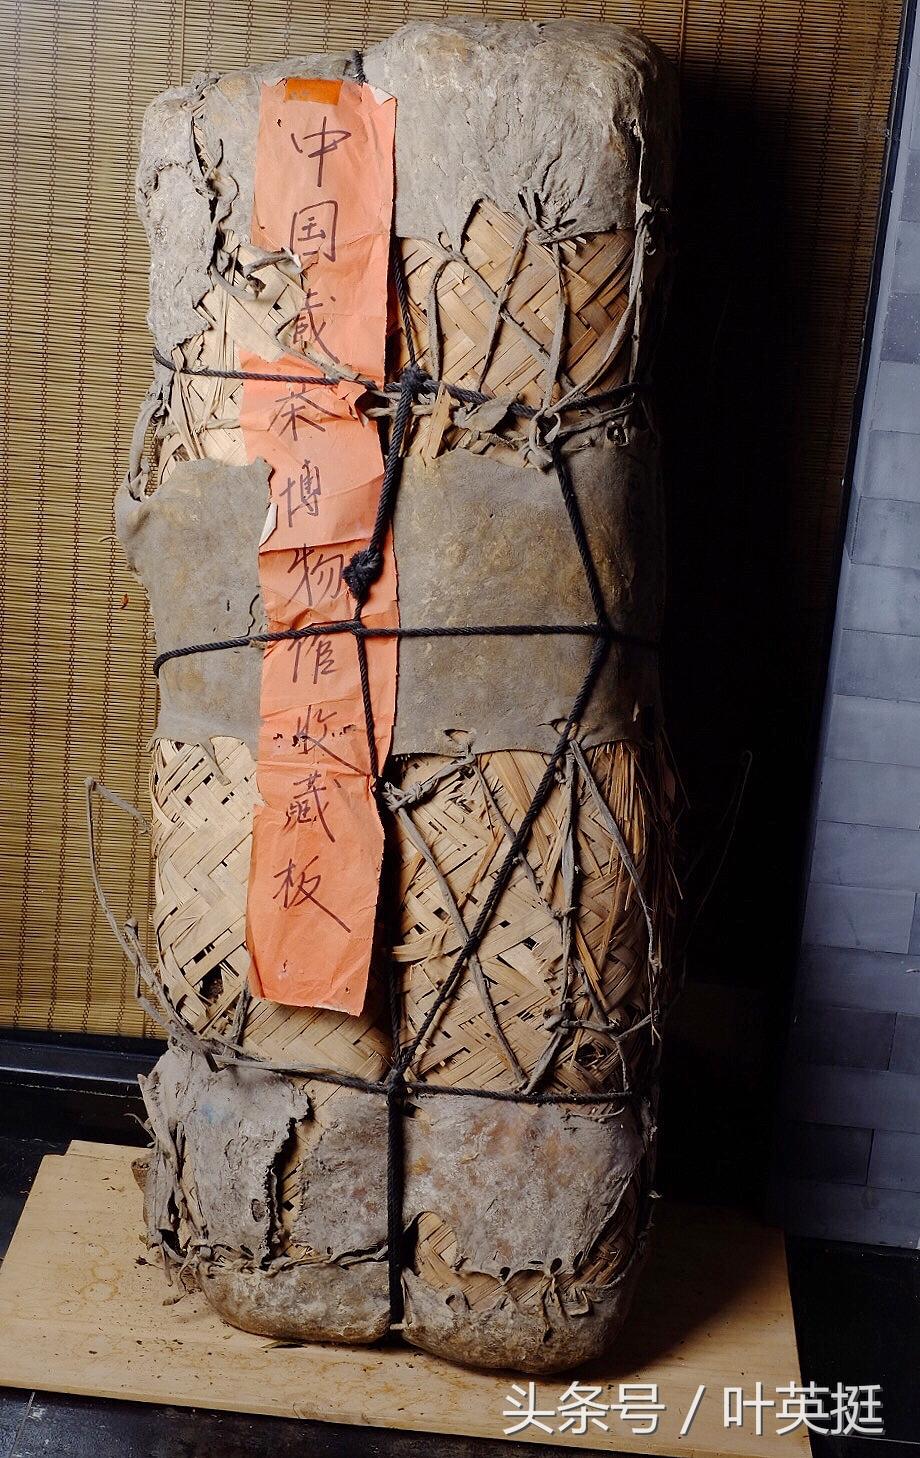 中国藏茶博物馆收藏板
头条号 / 叶英挺